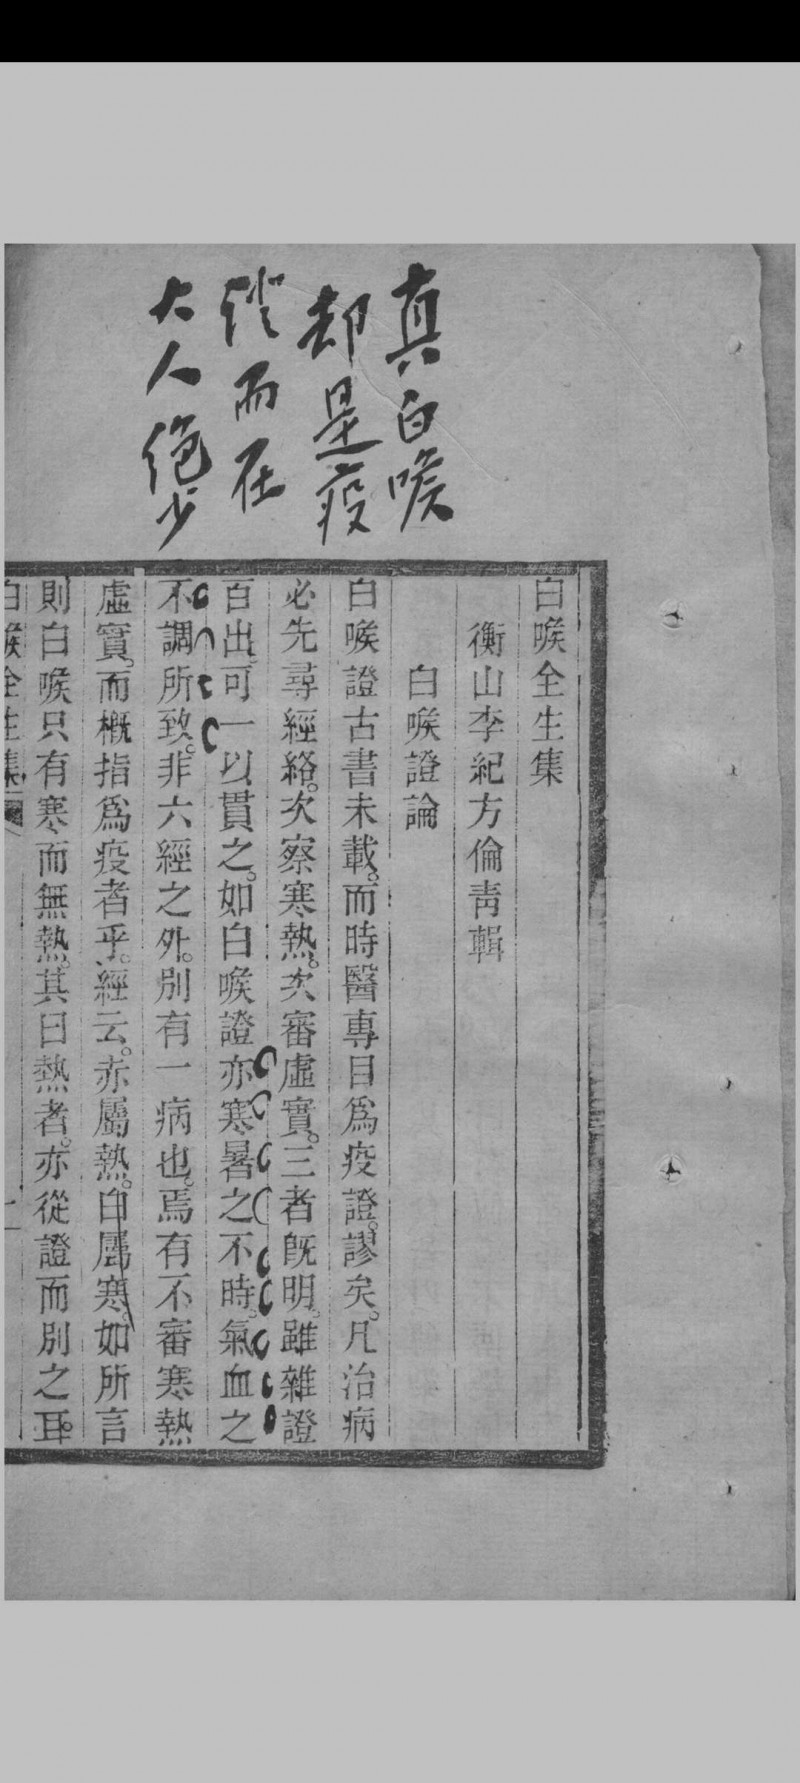 真白喉
却是疫
證而在
大人絕少
白喉全生集
衡山李紀方倫靑輯
白喉證論
白喉證古書未載。而時醫專目爲疫證。謬矣。凡治病
必先尋經絡。次察寒熱。次審虛實。三者旣明。雖雜證
百出。可一以貫之。如白喉證亦寒暑之不時。氣血之
不調所致。非六經之外。別有一病也。焉有不審寒熱
虛實。而槪指爲疫者乎。經云。赤屬熱。白屬寒。如所言
則白喉只有寒而無熱。其曰熱者。亦從證而別之耳。
白喉全生集
一